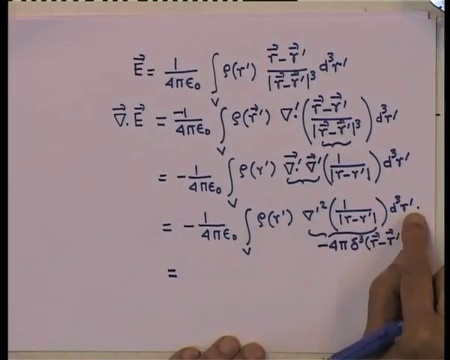 E⃗ = 1/4πε₀ ∫_V ρ(r') (r⃗-r⃗')/|r⃗-r⃗'|³ d³r'
∇⃗.E⃗ = -1/4πε₀ ∫_V ρ(r⃗') ∇'.((r⃗-r⃗')/|r⃗-r⃗'|³) d³r'
= -1/4πε₀ ∫_V ρ(r') ∇⃗'.∇⃗'(1/|r-r'|) d³r'
= -1/4πε₀ ∫_V ρ(r') ∇'²(1/|r-r'|) d³r'.
-4πδ³(r⃗-r⃗'
=